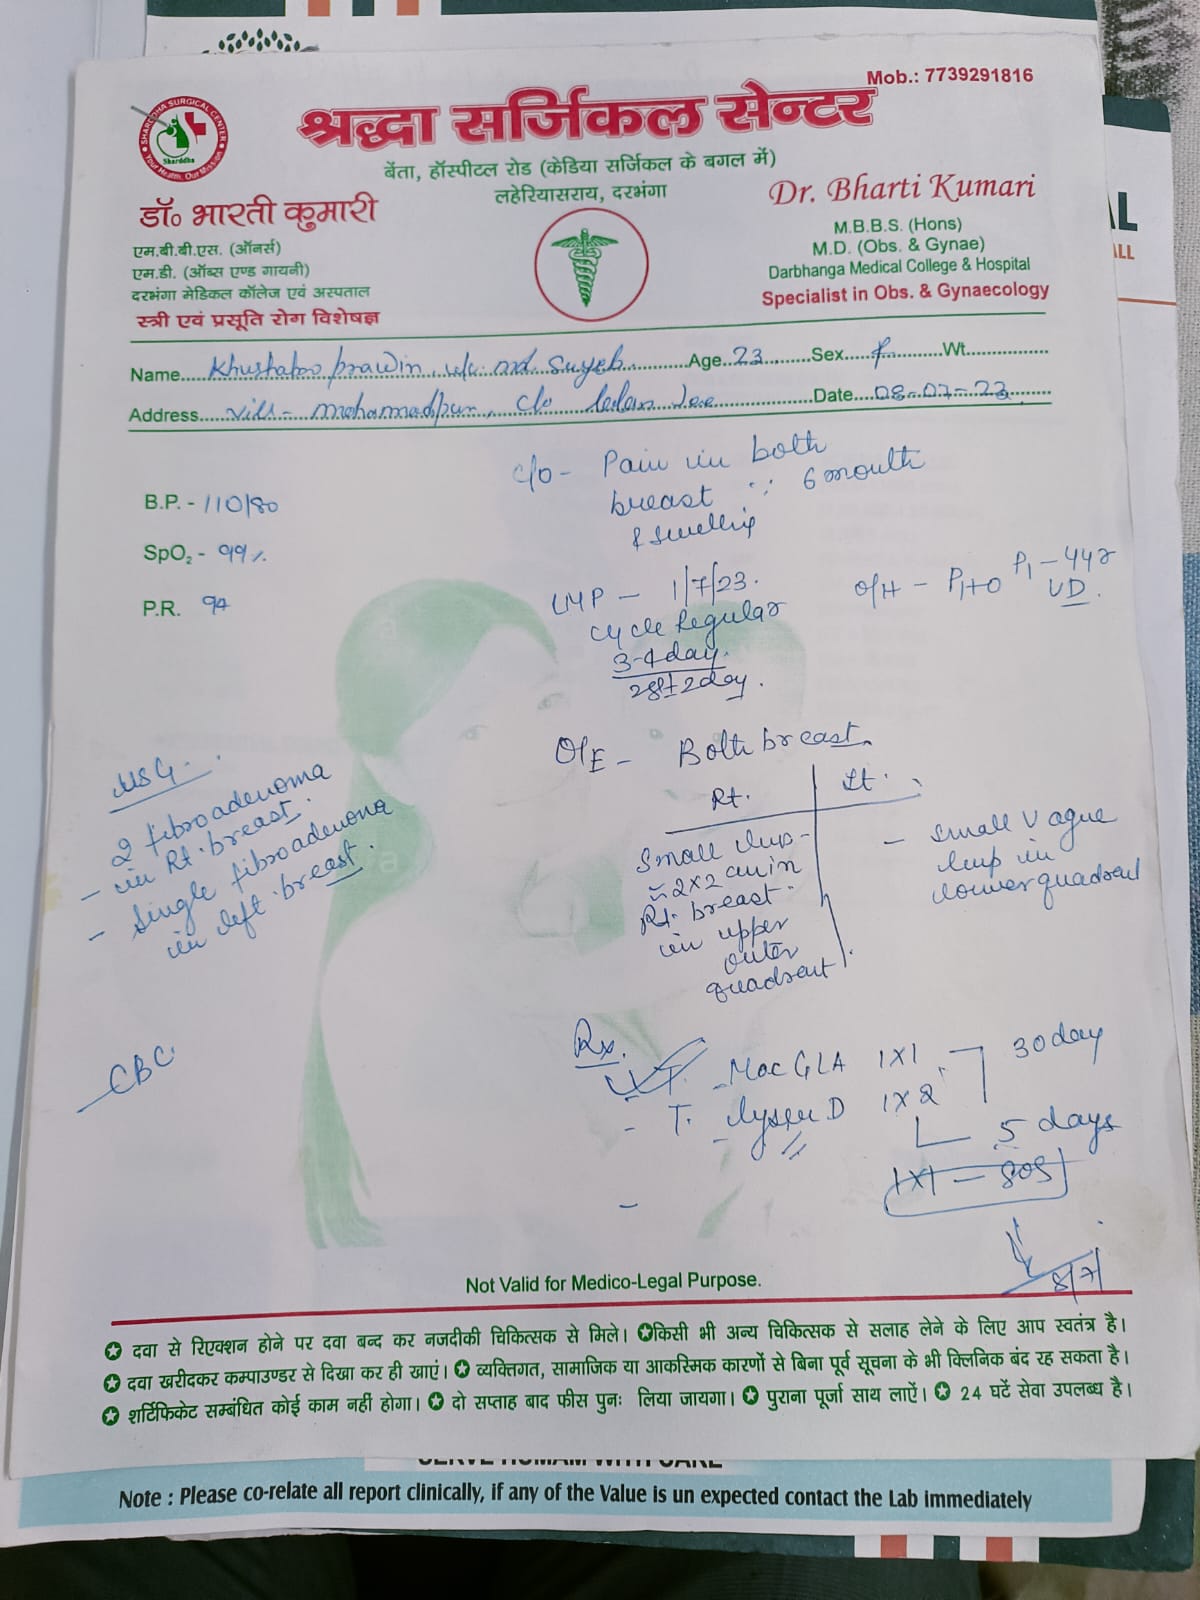 Mob.: 7739291816
श्रद्धा सर्जिकल सेन्टर
बेंता, हॉस्पीटल रोड (केडिया सर्जिकल के बगल में)
लहेरियासराय, दरभंगा
SHARDDHA SURGICAL CENTER
Sharddha
Your Health, Our Mission
डॉ॰ भारती कुमारी
एम.बी.बी.एस. (ऑनर्स)
एम.डी. (ऑब्स एण्ड गायनी)
दरभंगा मेडिकल कॉलेज एवं अस्पताल
स्त्री एवं प्रसूति रोग विशेषज्ञ
Dr. Bharti Kumari
M.B.B.S. (Hons)
M.D. (Obs. & Gynae)
Darbhanga Medical College & Hospital
Specialist in Obs. & Gynaecology
Name.... Khushaboo prawin, w/o. md. Suyeb ....Age..23....Sex....f....Wt....
Address.... Vill- mohamadpur, c/o ....Date...08-07-23
B.P. - 110/80
SpO₂ - 99%
P.R. 94
c/o - Pain in both
breast 6 month
& swelling
LMP - 1/7/23.
Cycle Regular
3-4day.
28±2day.
O/H - P1+0 P1 - 4yr
VD.
O/E - Both breast
Rt. Lt.
Small lump -
≈ 2×2 cm in
Rt. breast
in upper
outer
quadrant
- small vague
lump in
lower quadrant
USG.
- 2 fibroadenoma
in Rt. breast.
- Single fibroadenona
in left breast.
CBC
Rx.
- T. Mac GLA 1×1 30 day
- T. D 1×2
5 days
1×1 - SOS
8/7/
Not Valid for Medico-Legal Purpose.
✪ दवा से रिएक्शन होने पर दवा बन्द कर नजदीकी चिकित्सक से मिले। ✪किसी भी अन्य चिकित्सक से सलाह लेने के लिए आप स्वतंत्र है।
✪ दवा खरीदकर कम्पाउण्डर से दिखा कर ही खाएं। ✪ व्यक्तिगत, सामाजिक या आकस्मिक कारणों से बिना पूर्व सूचना के भी क्लिनिक बंद रह सकता है।
✪ शर्टिफिकेट सम्बंधित कोई काम नहीं होगा। ✪ दो सप्ताह बाद फीस पुनः लिया जायगा। ✪ पुराना पूर्जा साथ लाऐं। ✪ 24 घटें सेवा उपलब्ध है।
Note : Please co-relate all report clinically, if any of the Value is un expected contact the Lab immediately